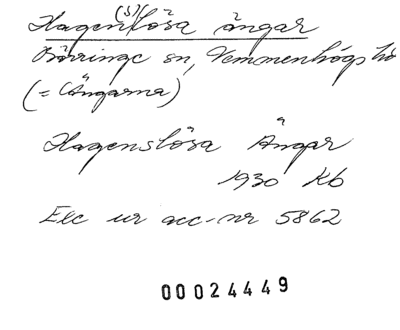 Hagen(s)lösa ängar
Börringe sn, Vemmenhögs hd
(= Ängarna)
Hagenslösa Ängar
1930 Kb
Exc ur acc-nr 5862
00024449